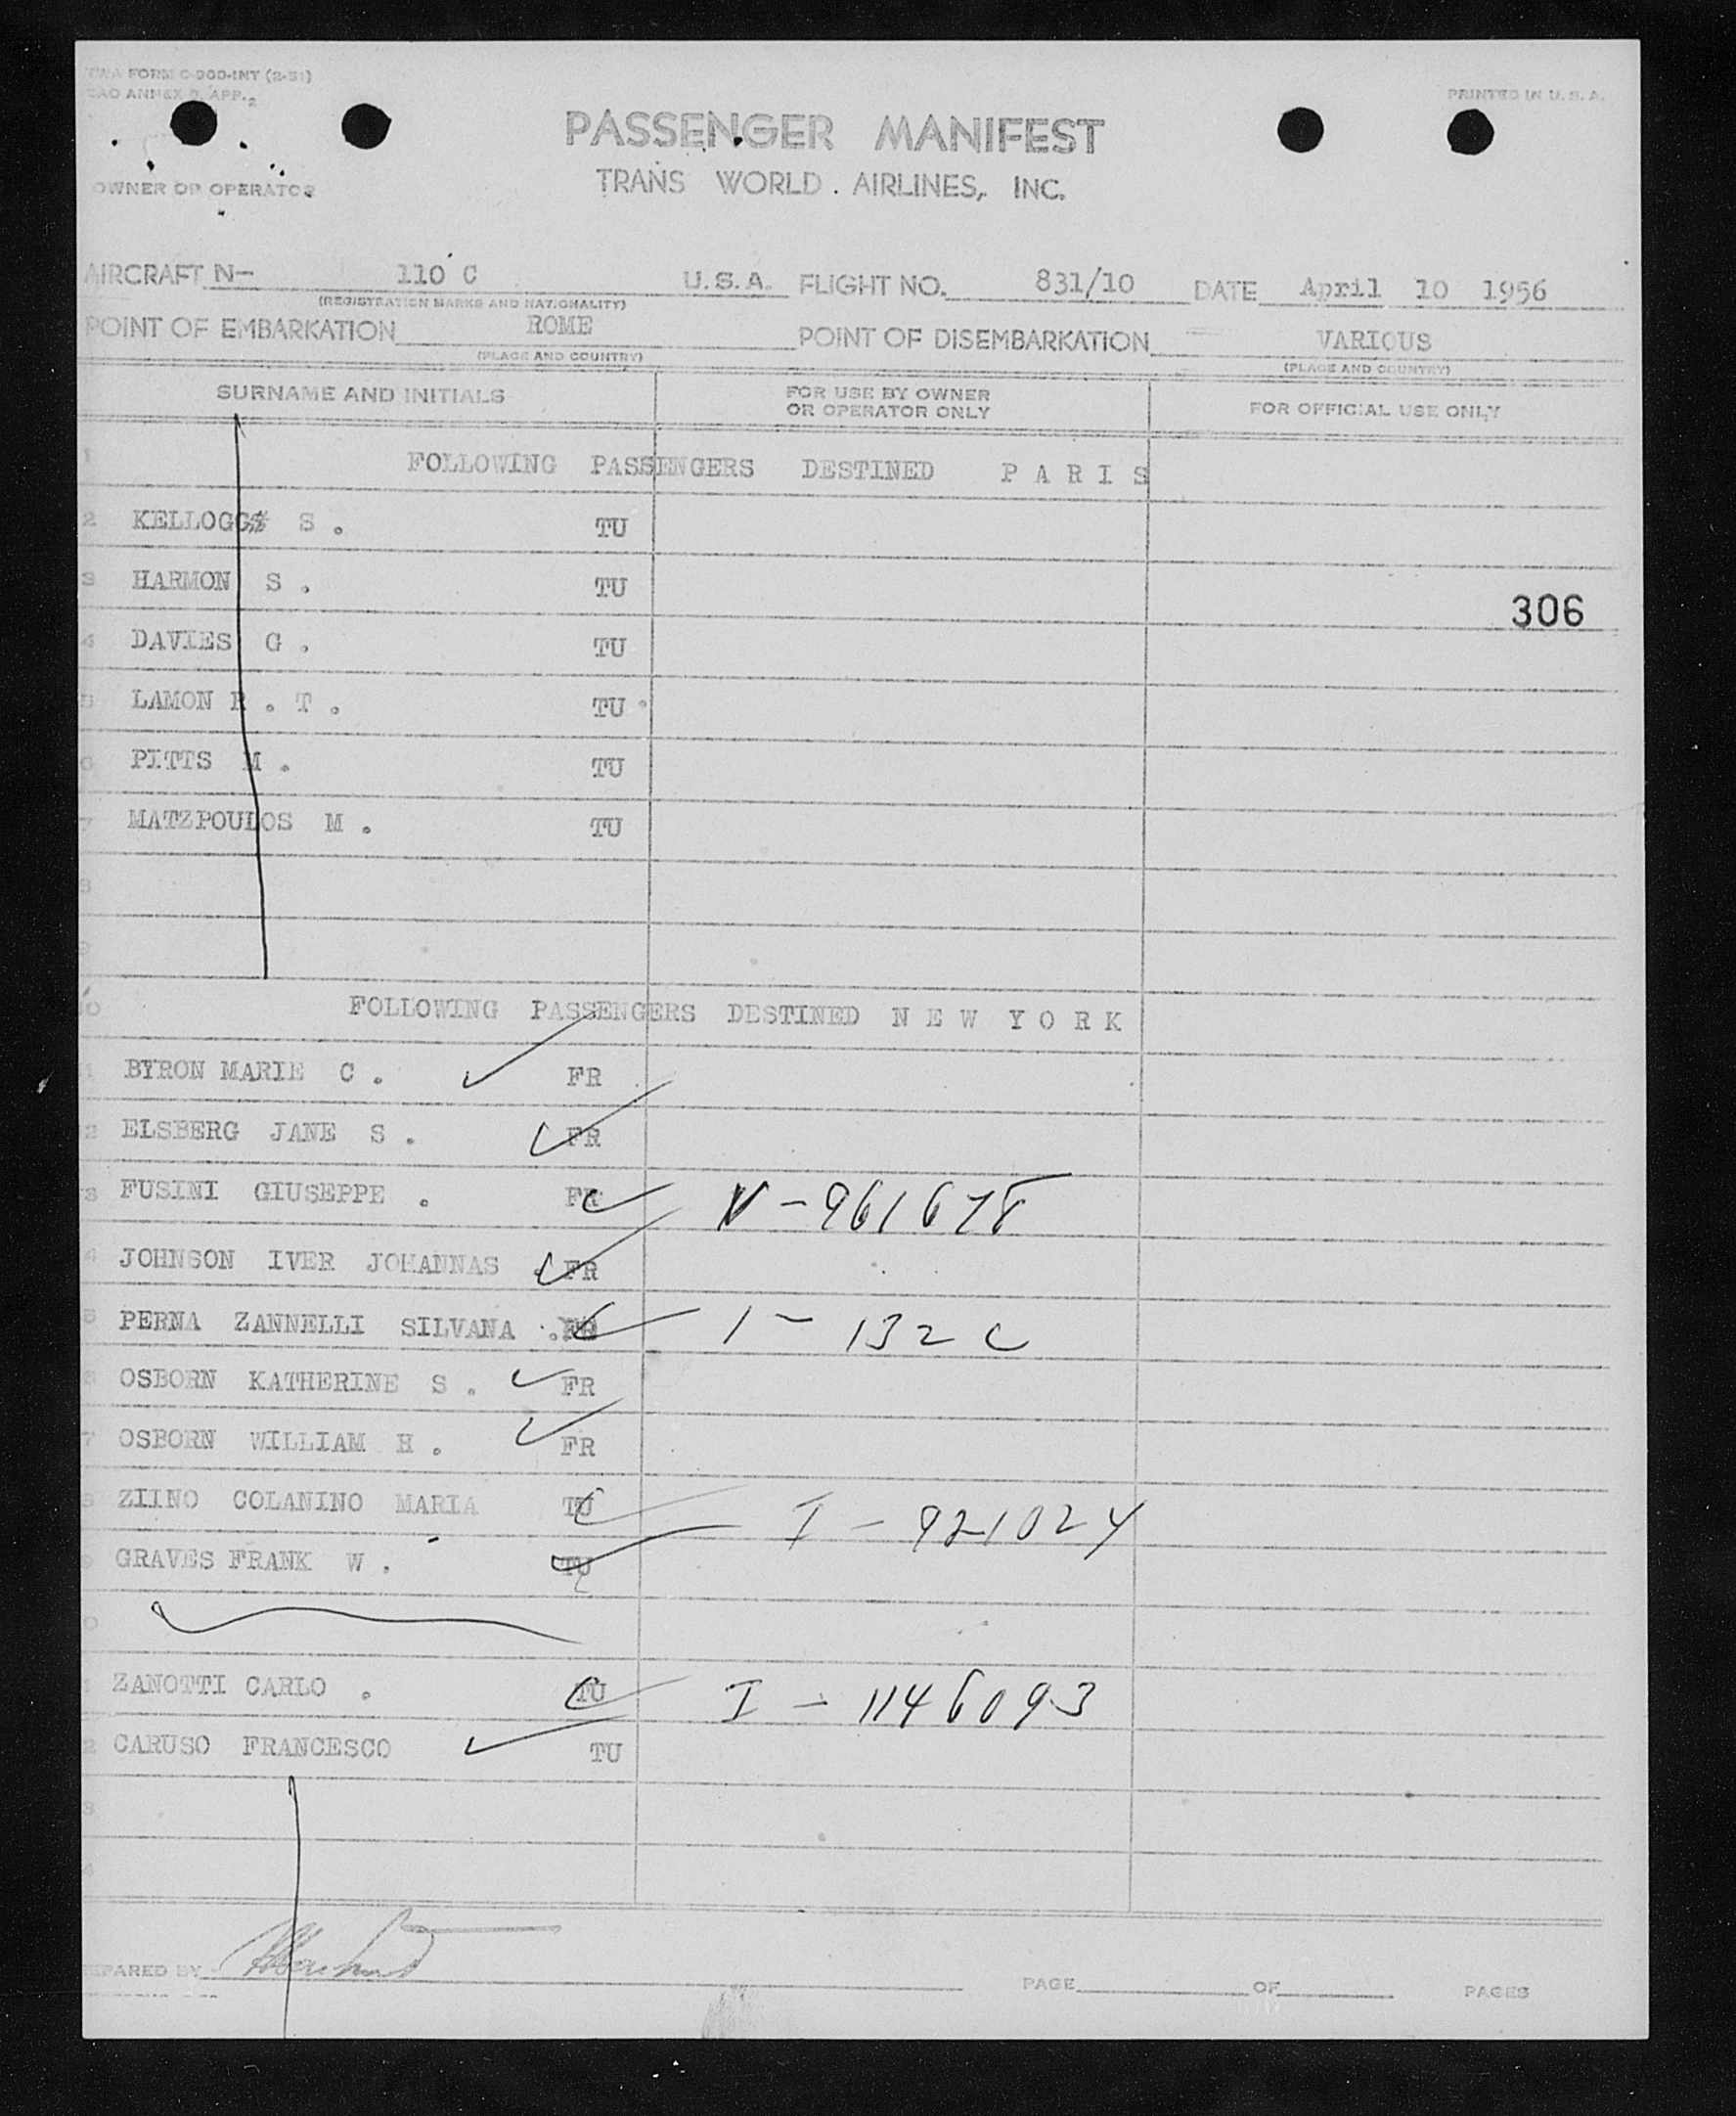 TWA FORM C-900-INT (2-51)
ICAO ANNEX 9, APP. 2
PRINTED IN U. S. A.
PASSENGER MANIFEST
OWNER OR OPERATOR
TRANS WORLD AIRLINES, INC.
AIRCRAFT N- 110 C U.S.A. FLIGHT NO. 831/10 DATE April 10 1956
(REGISTRATION MARKS AND NATIONALITY)
POINT OF EMBARKATION ROME POINT OF DISEMBARKATION VARIOUS
(PLACE AND COUNTRY) (PLACE AND COUNTRY)
SURNAME AND INITIALS FOR USE BY OWNER OR OPERATOR ONLY FOR OFFICIAL USE ONLY
1 FOLLOWING PASSENGERS DESTINED P A R I S
2 KELLOGG S . TU
3 HARMON S . TU
306
4 DAVIES G . TU
5 LAMON R . T . TU
6 PITTS M . TU
7 MATZPOULOS M . TU
8
9
10 FOLLOWING PASSENGERS DESTINED N E W Y O R K
1 BYRON MARIE C . FR
2 ELSBERG JANE S . FR
3 FUSINI GIUSEPPE . FR V-961678
4 JOHNSON IVER JOHANNAS . FR
5 PERNA ZANNELLI SILVANA . FR I-132 C
6 OSBORN KATHERINE S . FR
7 OSBORN WILLIAM H . FR
8 ZIINO COLANINO MARIA TU I-921024
9 GRAVES FRANK W . TU
0
1 ZANOTTI CARLO . TU I-1146093
2 CARUSO FRANCESCO TU
3
4
PREPARED BY PAGE OF PAGES